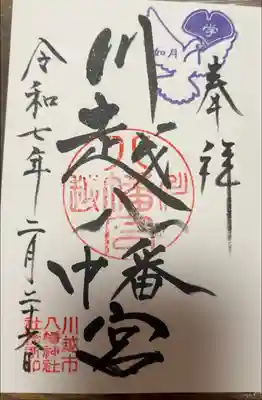 奉拝
学
如月
川越八幡宮
令和七年二月二十六日
川越市
八幡神社
社務所印